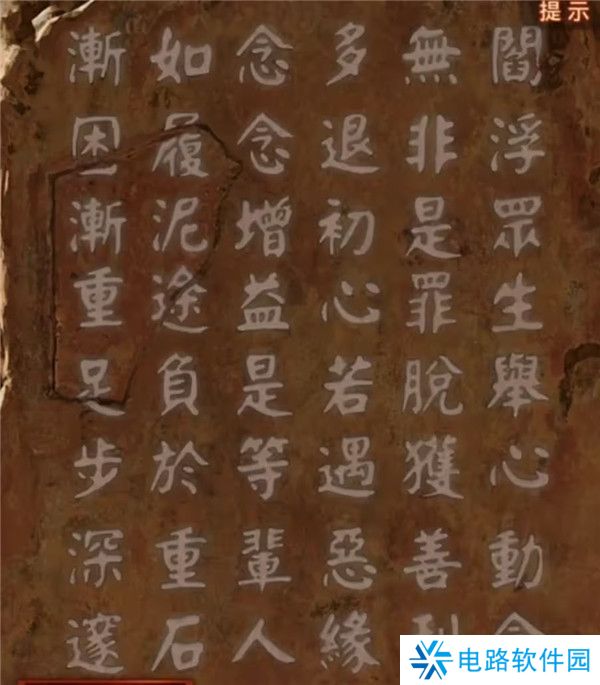 提示
閻浮眾生舉心動念
無非是罪脫獲善利
多退初心若遇惡緣
念念增益是等輩人
如履泥途負於重石
漸困漸重足步深邃
电路软件园